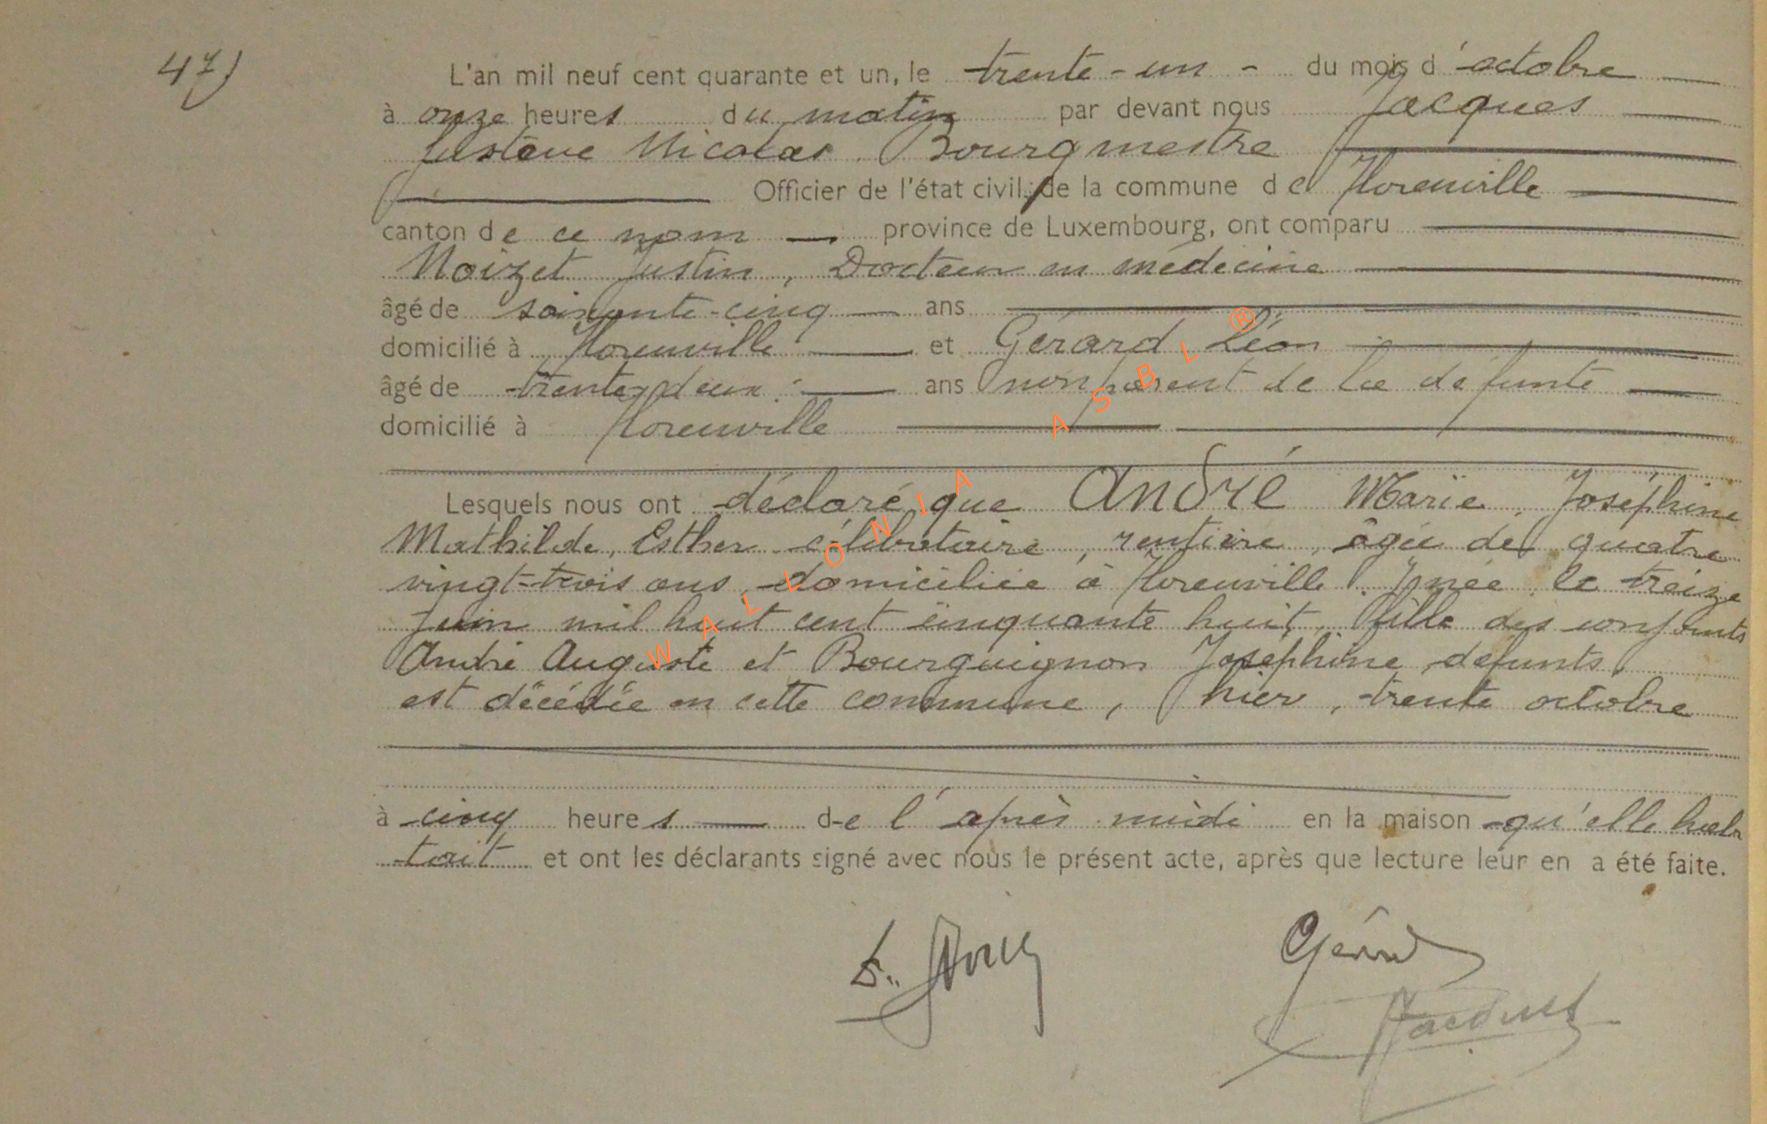 47)
L'an mil neuf cent quarante et un, le trente-un - du mois d'octobre
à onze heures du matin par devant nous Jacques
Gustave Nicolas Bourgmestre
Officier de l'état civil, de la commune de Florenville
canton de ce nom province de Luxembourg, ont comparu
Noizet Justin, Docteur en médecine
âgé de soixante-cinq ans
domicilié à Florenville et Gérard Léon
âgé de trente-deux ans non parent de la défunte
domicilié à Florenville
Lesquels nous ont déclaré que André Marie, Joséphine
Mathilde, Esther célibataire, rentière, âgée de quatre
vingt-trois ans, domiciliée à Florenville, y née le treize
juin mil huit cent cinquante huit, fille des conjoints
André Auguste et Bourguignon Joséphine, défunts
est décédée en cette commune, hier, trente octobre
à cinq heures de l'après midi en la maison qu'elle habi
tait et ont les déclarants signé avec nous le présent acte, après que lecture leur en a été faite.
Gérard
Jacques
WALLONIA ASBL ®